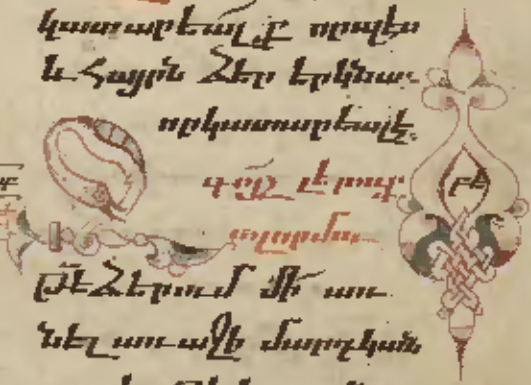 կատարեալք որպէս
և Հայրն ձեր երկնաւ
որ կատարեալ է.
Զգոյշ լերուք
ողորմու
թե ձերում մի՛ առ
նել առաջի մարդկան